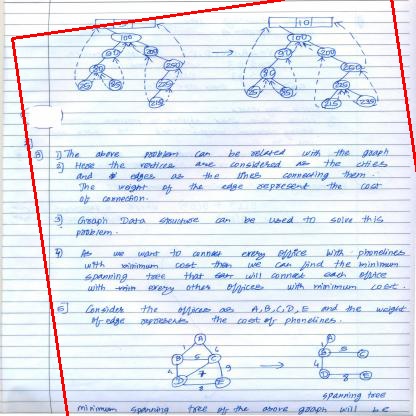 100
100
90 200
80 250
25 85 225
215
100
90 200
80 250
25 85 225
215 235
1) The above problem can be related with the graph
2) Here the vertices are considered as the cities
and edges as the lines connecting them.
The weight of the edge represent the cost
of connection.
3) Graph Data structure can be used to solve this
problem.
4) As we want to connect every office with phonelines
with minimum cost then we can find the minimum
spanning tree that will connect each office
with every other offices with minimum cost.
5) Consider the offices as A, B, C, D, E and the weight
of edge represents the cost of phonelines.
A
B 5 C
4 7 9
D 8 E
A
B 5 C
4
D 8 E
spanning tree
minimum spanning tree of the above graph will be